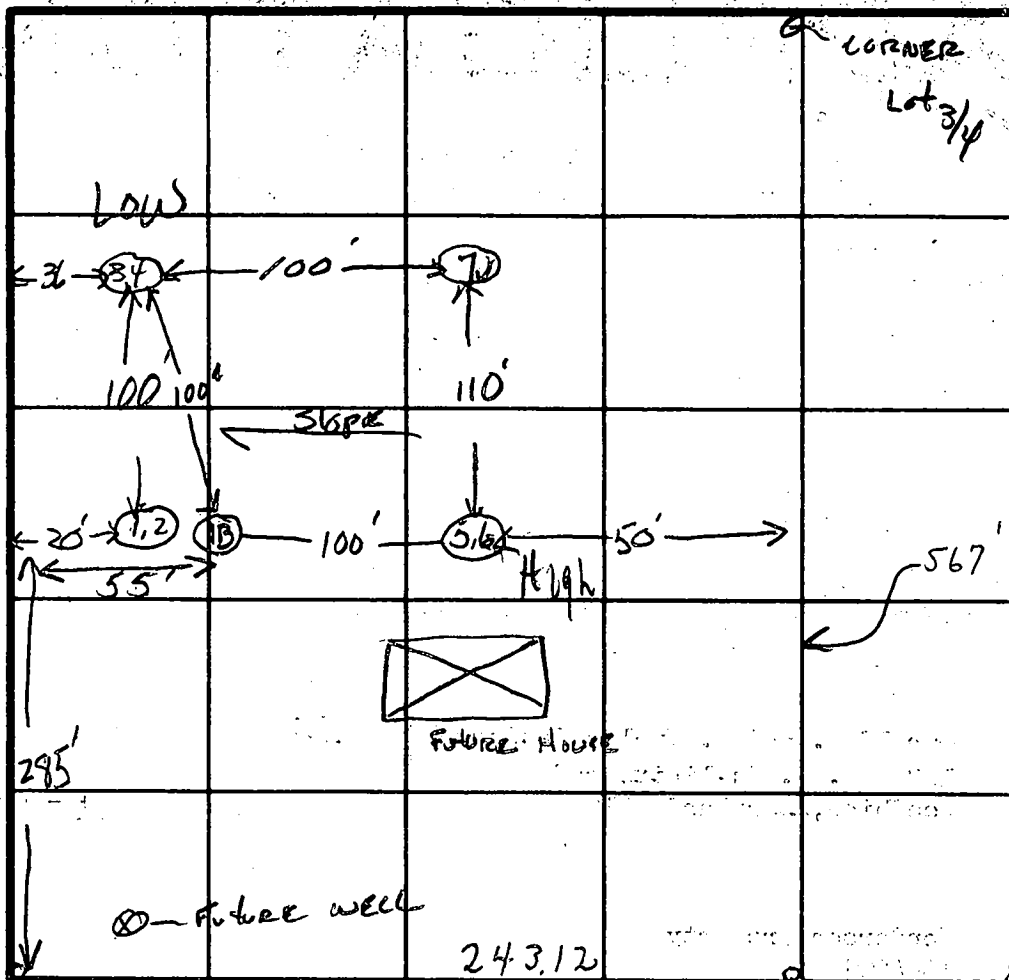 CORNER
Lot 3/4
LOW
36
3,4
100'
7
100' 100'
110'
Slope
20'
1,2
B
100'
5,6
50'
55'
High
567'
FUTURE HOUSE
285'
FUTURE WELL
243.12